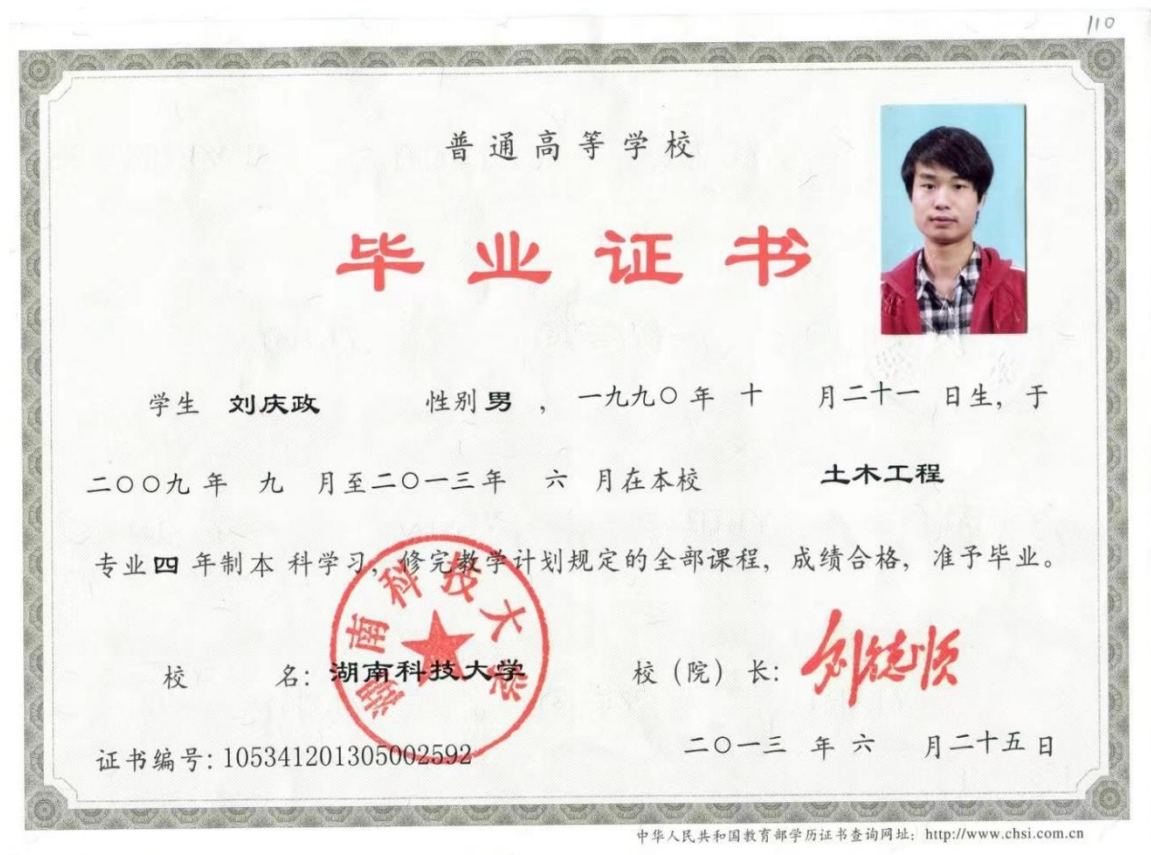 110
普通高等学校
毕业证书
学生 刘庆政 性别 男 ，一九九〇年 十 月二十一 日生，于
二〇〇九年 九 月至二〇一三年 六 月在本校 土木工程
专业四 年制本 科学习，修完教学计划规定的全部课程，成绩合格，准予毕业。
湖南科技大学
校 名：湖南科技大学 校（院）长：刘德顺
证书编号：105341201305002592 二〇一三 年 六 月二十五日
中华人民共和国教育部学历证书查询网址：http://www.chsi.com.cn